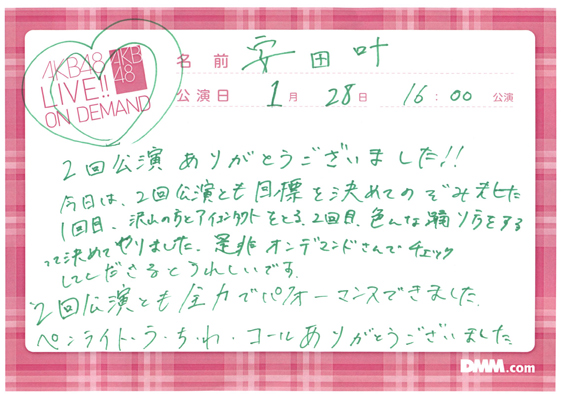 AKB48
LIVE!!
ON DEMAND
AKB
48
名前 安田叶
公演日 1月 28日 16:00 公演
2回公演ありがとうございました!!
今日は、2回公演とも目標を決めてのぞみました
1回目、沢山の方とアイコンタクトをとる、2回目、色んな踊り方をする
って決めてやりました、是非オンデマンドさんでチェック
してくださるとうれしいです。
2回公演とも全力でパフォーマンスできました。
ペンライト・う・ち・わ・コールありがとうございました
DMM.com